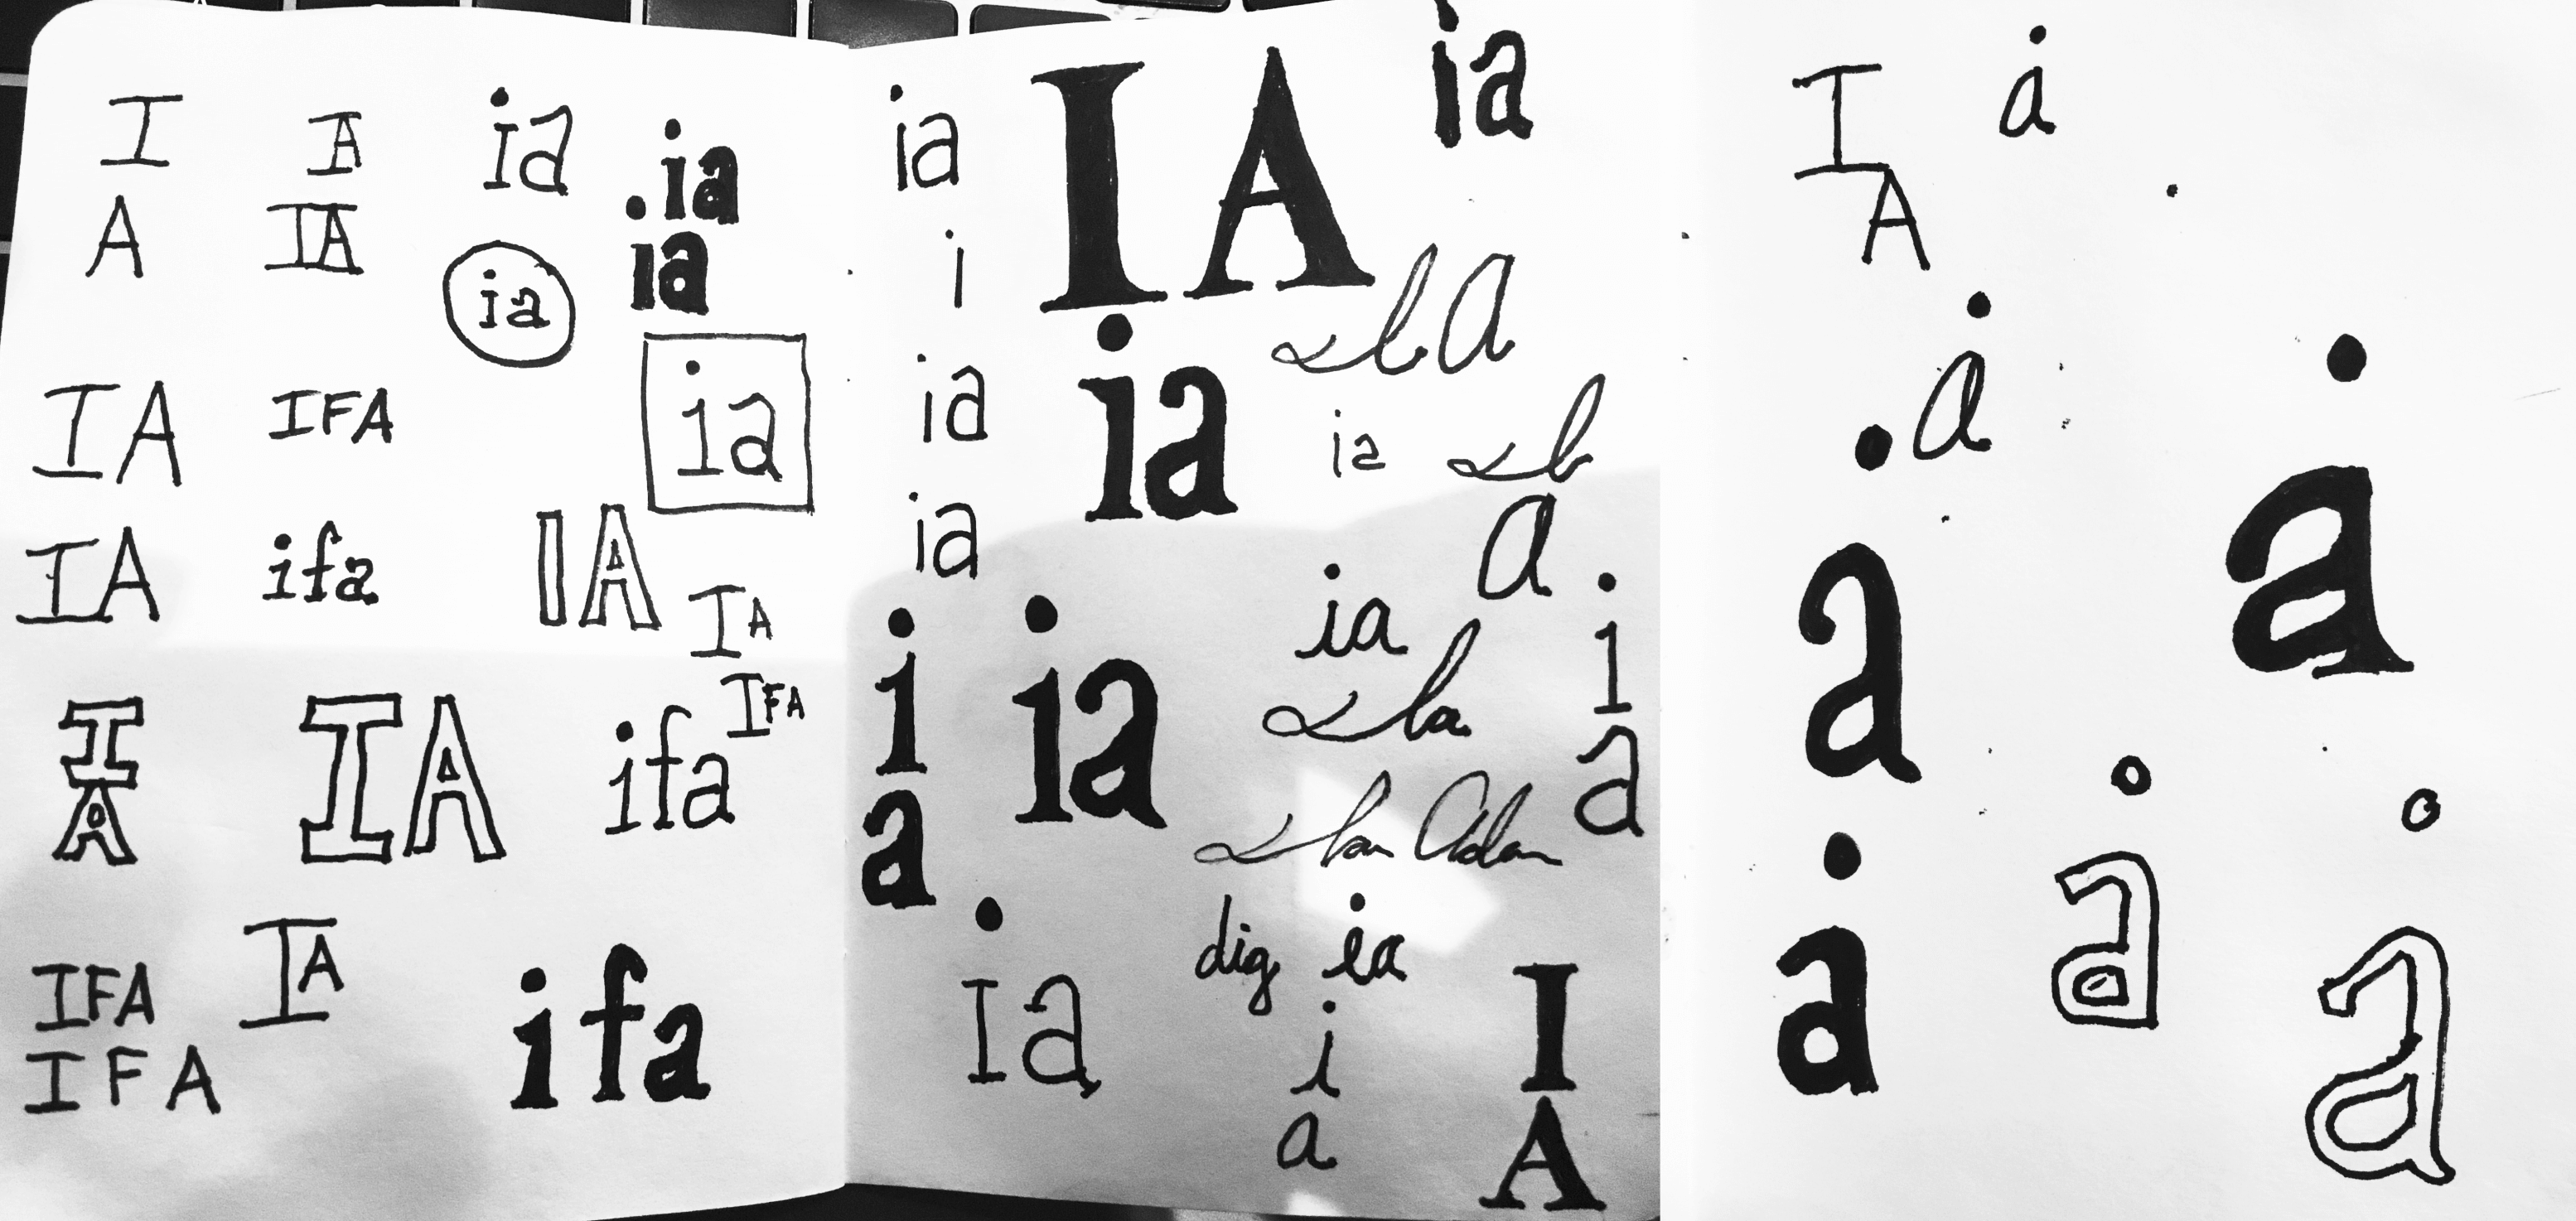 I
A
IA
IA
IA
IA
I
A
IFA
I F A
A
IA
IFA
ifa
IA
IA
ia
ia
IA
ifa
ifa
.ia
ia
ia
IA
IFA
ia
i
ia
ia
i
a
IA
ia
ia
ia
ia
A
ia
A
ia
dig
ia
i
a
i
a
I
A
I
A
a
a
a
a
a
a
a